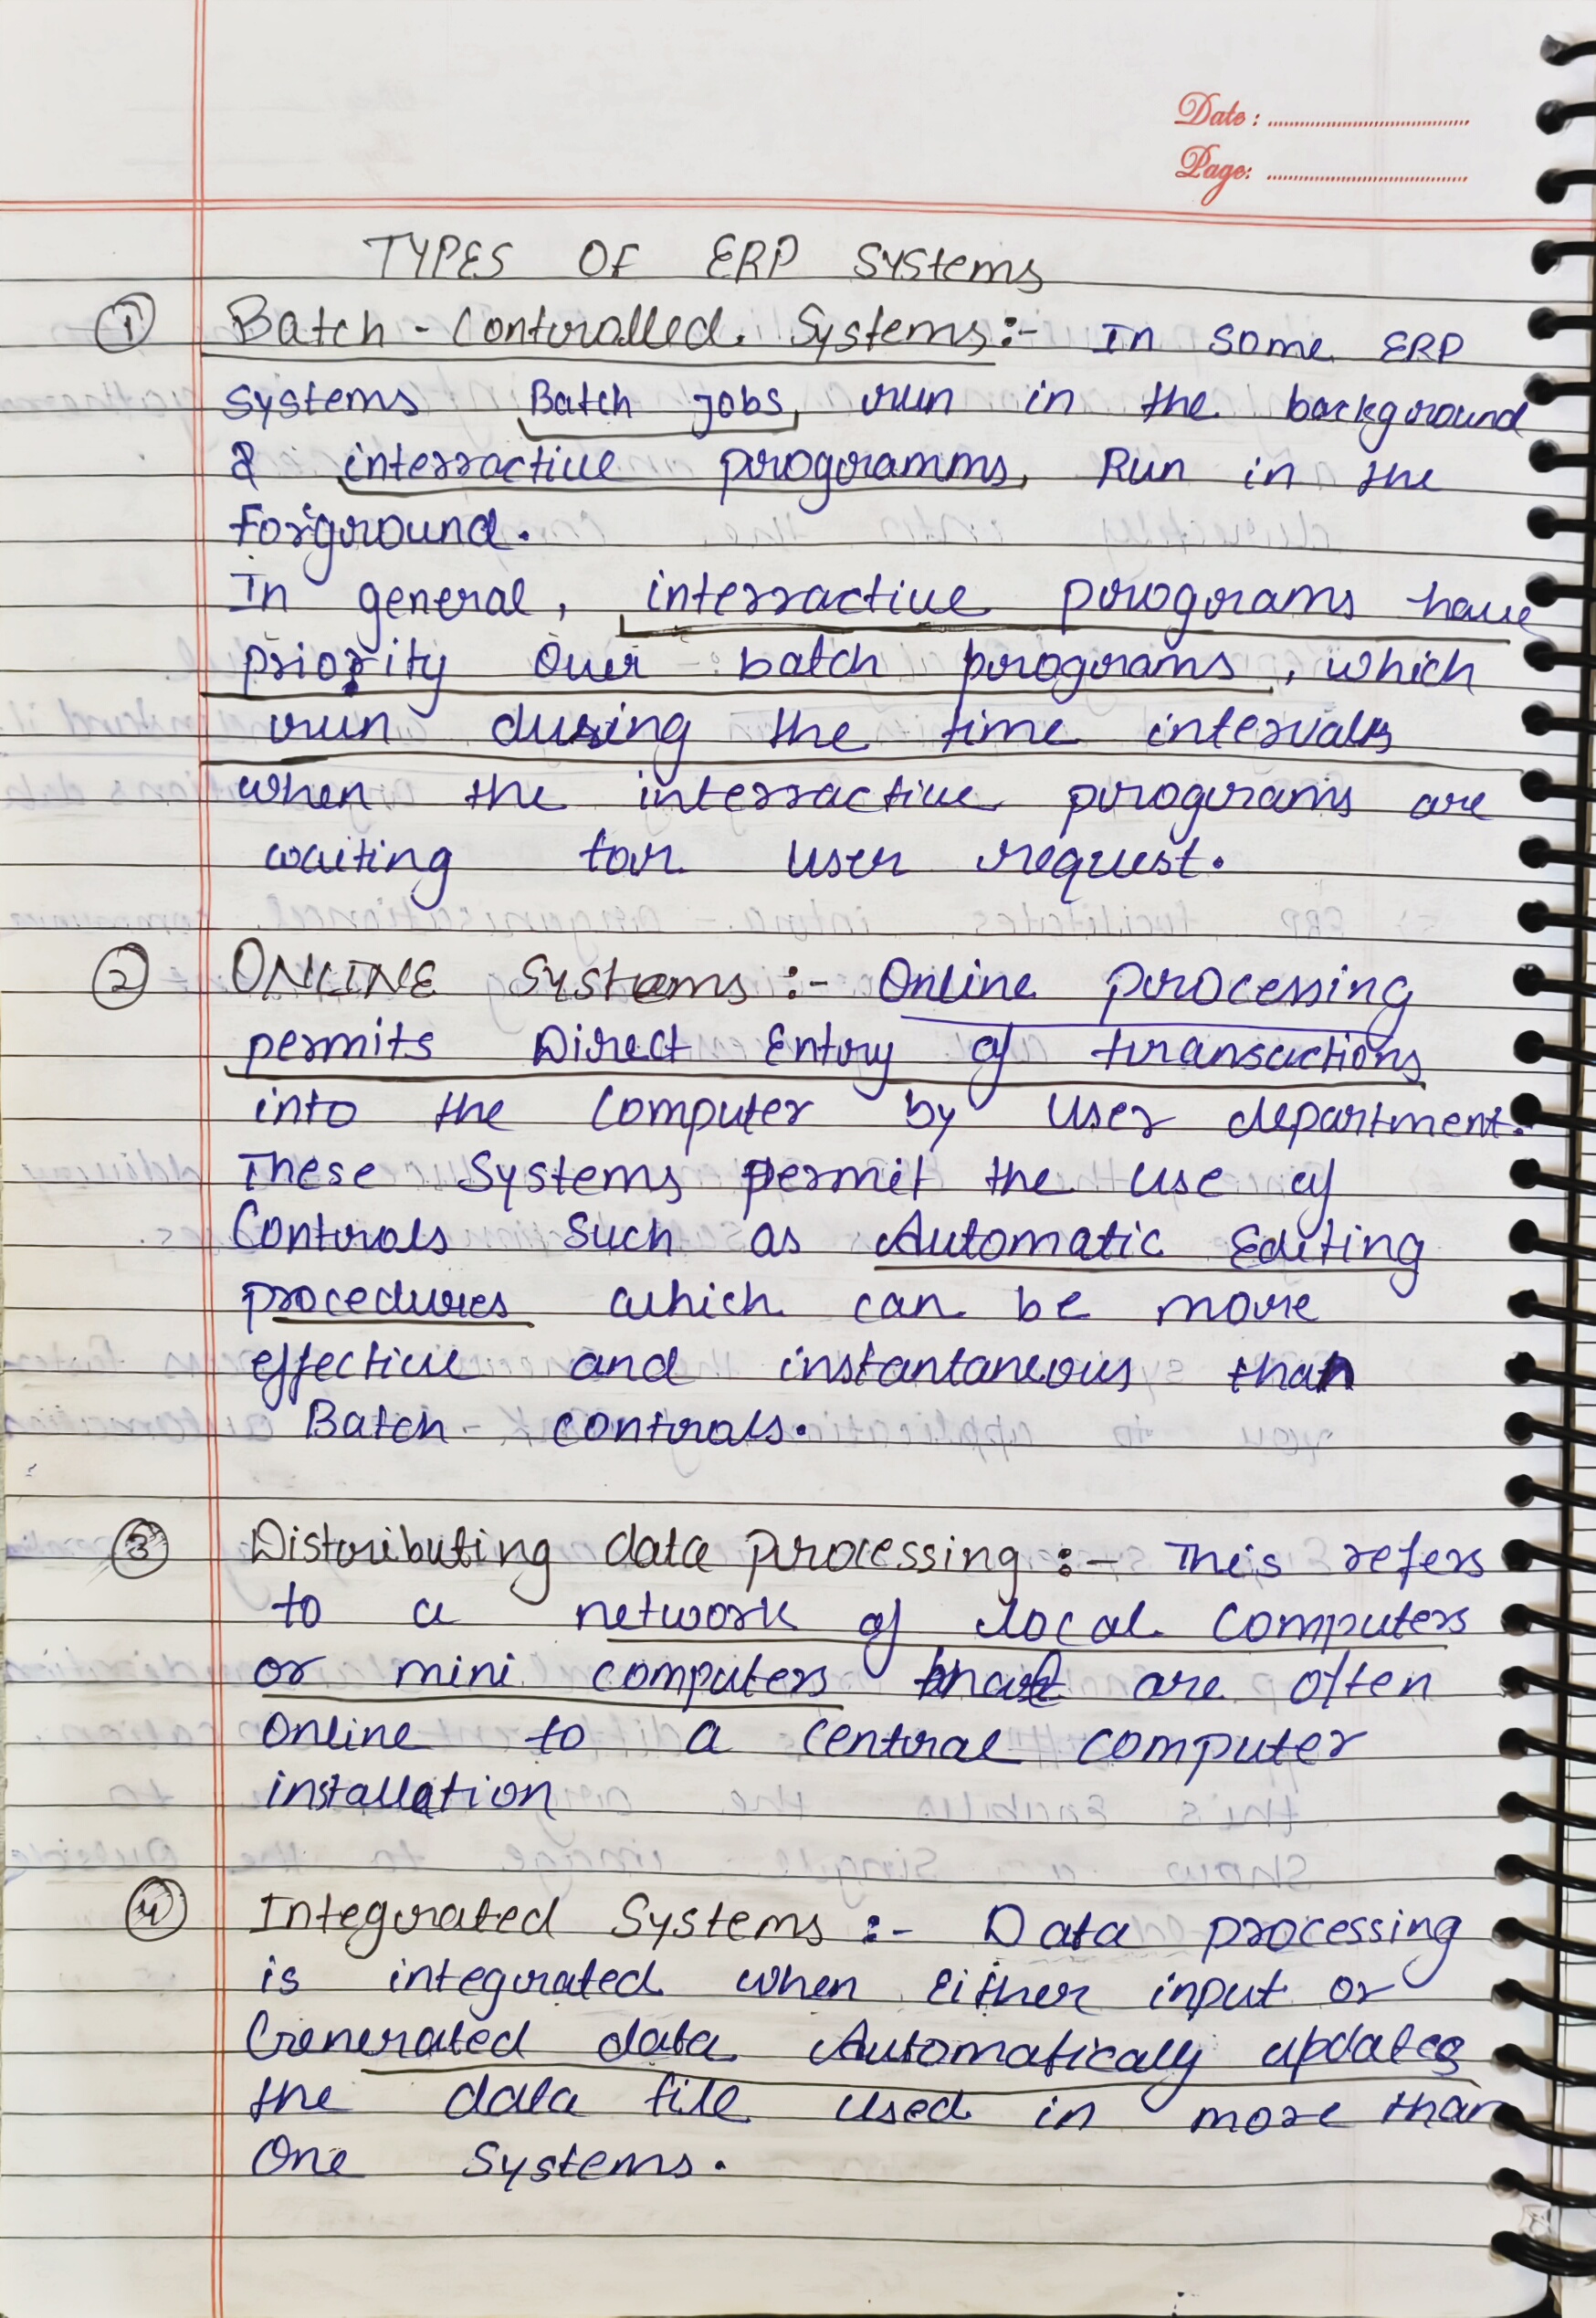 Date :
Page:
TYPES OF ERP Systems
① Batch - Controlled. Systems:- In some ERP
systems Batch jobs, run in the background
& interractive programms, Run in the
Forground.
In general, interractive programs have
priority over batch programs, which
run during the time intervals
when the interractive programs are
waiting for user request.
② ONLINE Systems :- Online processing
permits Direct Entry of transactions
into the Computer by User department.
These Systems permit the use of
Controls Such as Automatic Editing
procedures which can be more
effective and instantaneous than
Batch - controls.
③ Distributing data processing :- This refers
to a network of local Computers
or mini computers that are often
online to a central computer
installation
④ Integrated Systems :- Data processing
is integrated when Either input or
Generated data Automatically updates
the data file used in more than
One Systems.